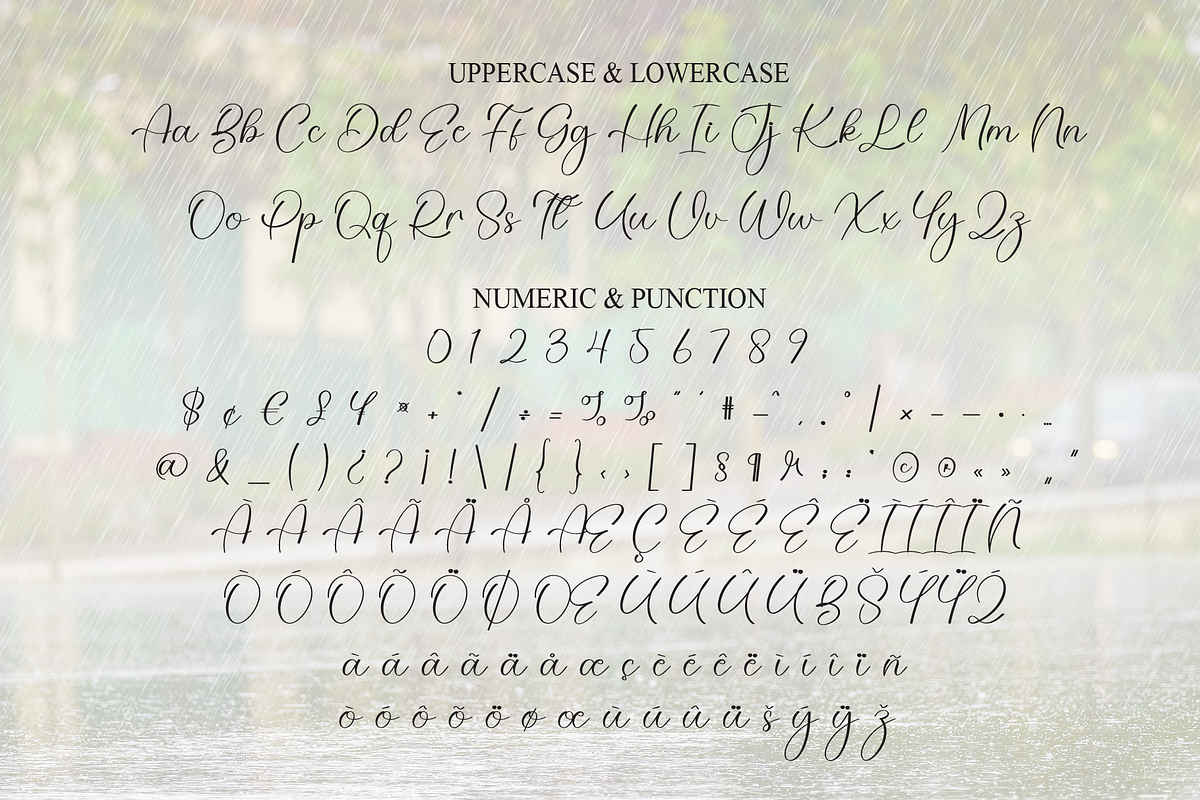 UPPERCASE & LOWERCASE
Aa Bb Cc Dd Ee Ff Gg Hh Ii Jj Kk Ll Mm Nn
Oo Pp Qq Rr Ss Tt Uu Vv Ww Xx Yy Zz
NUMERIC & PUNCTION
0 1 2 3 4 5 6 7 8 9
$ ¢ € £ ¥ ¤ + ˙ / ÷ = % ‰ " ' # – ^ , . ° | × - — • · …
@ & _ ( ) ¿ ? ¡ ! \ | { } ‹ › [ ] § ¶ ; : © ® « » „ ”
À Á Â Ã Ä Å Æ Ç È É Ê Ë Ì Í Î Ï Ñ
Ò Ó Ô Õ Ö Ø Œ Ù Ú Û Ü Š Ý Ÿ
à á â ã ä å æ ç è é ê ë ì í î ï ñ
ò ó ô õ ö ø œ ù ú û ü š ý ÿ ž